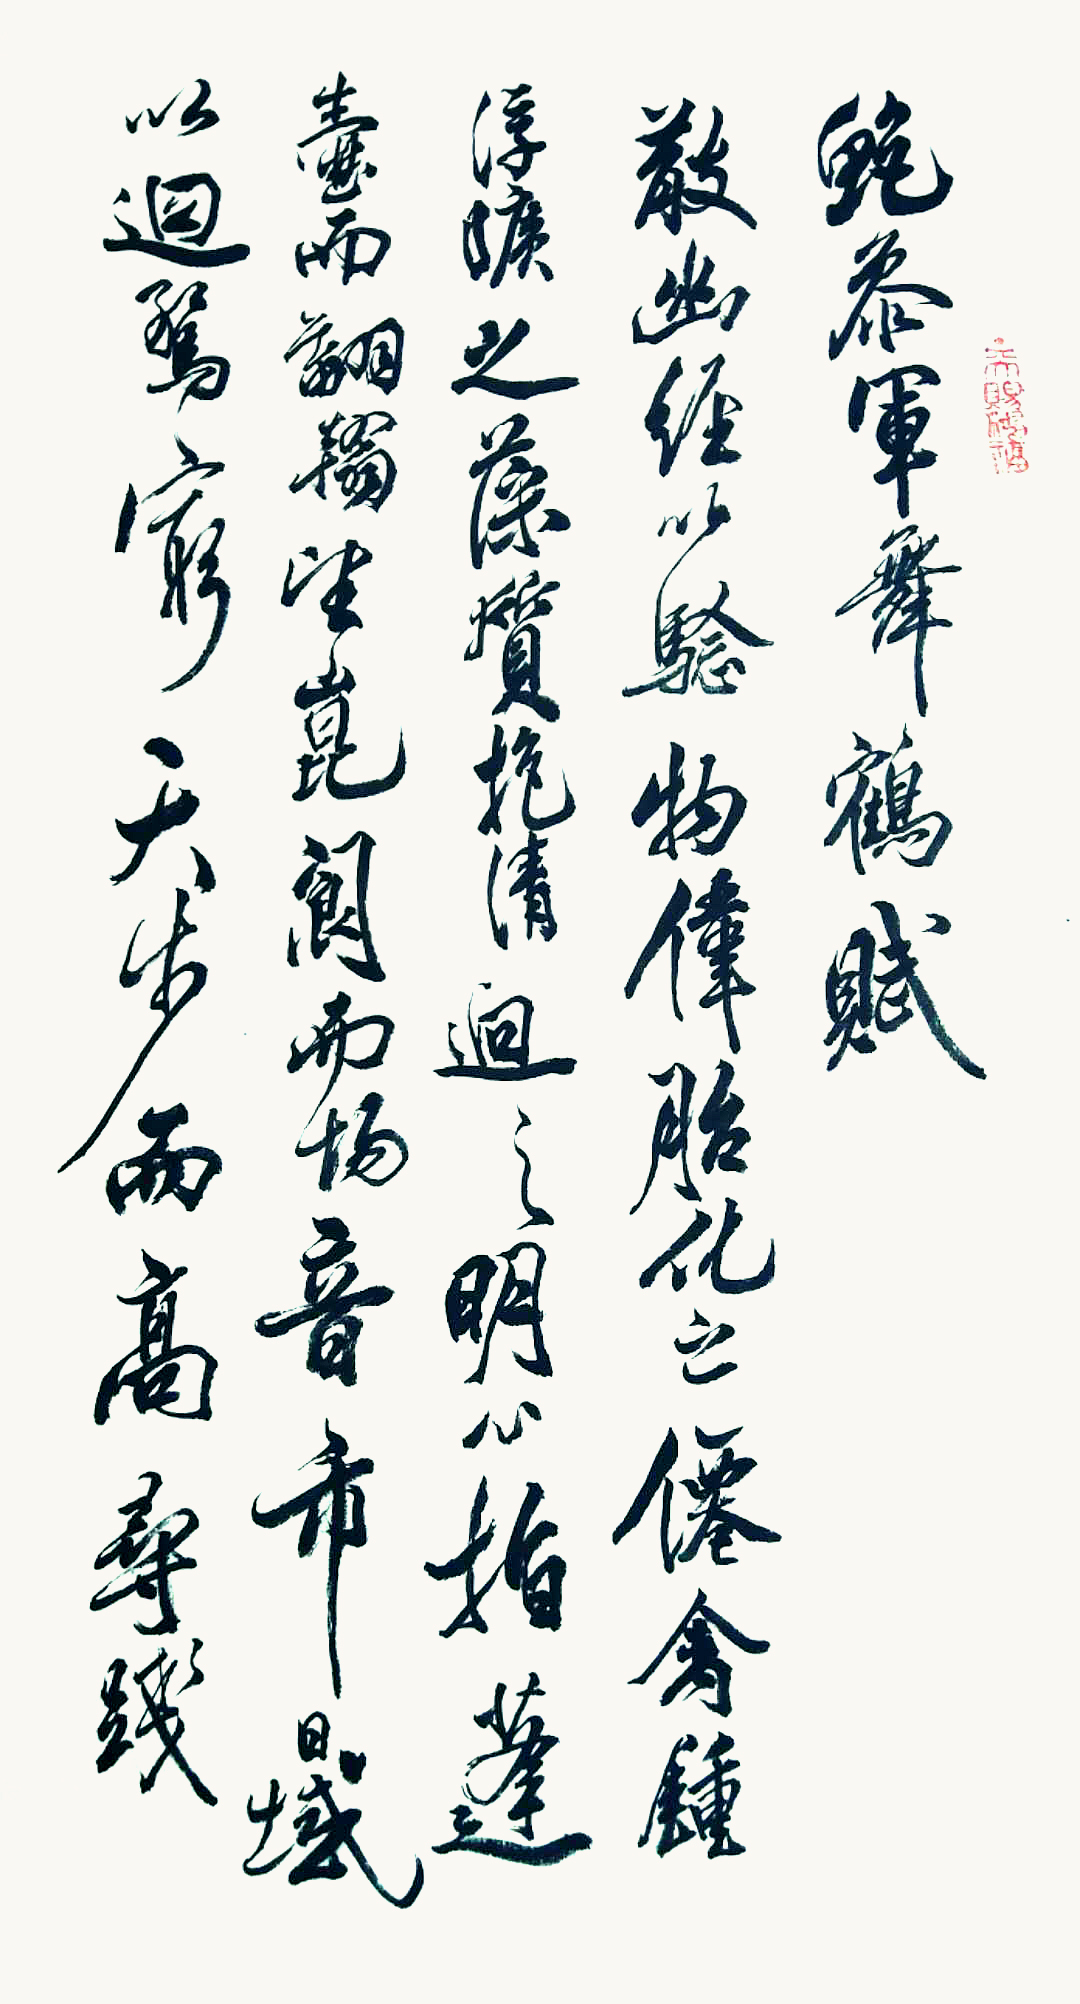 鮑叅軍舞鶴賦
散幽經以驗物偉胎化之僊禽鍾
浮曠之藻質抱清迥之明心指蓬
壺而翻翰望崑閬而揚音帀日域
以迴騖窮天步而高尋踐